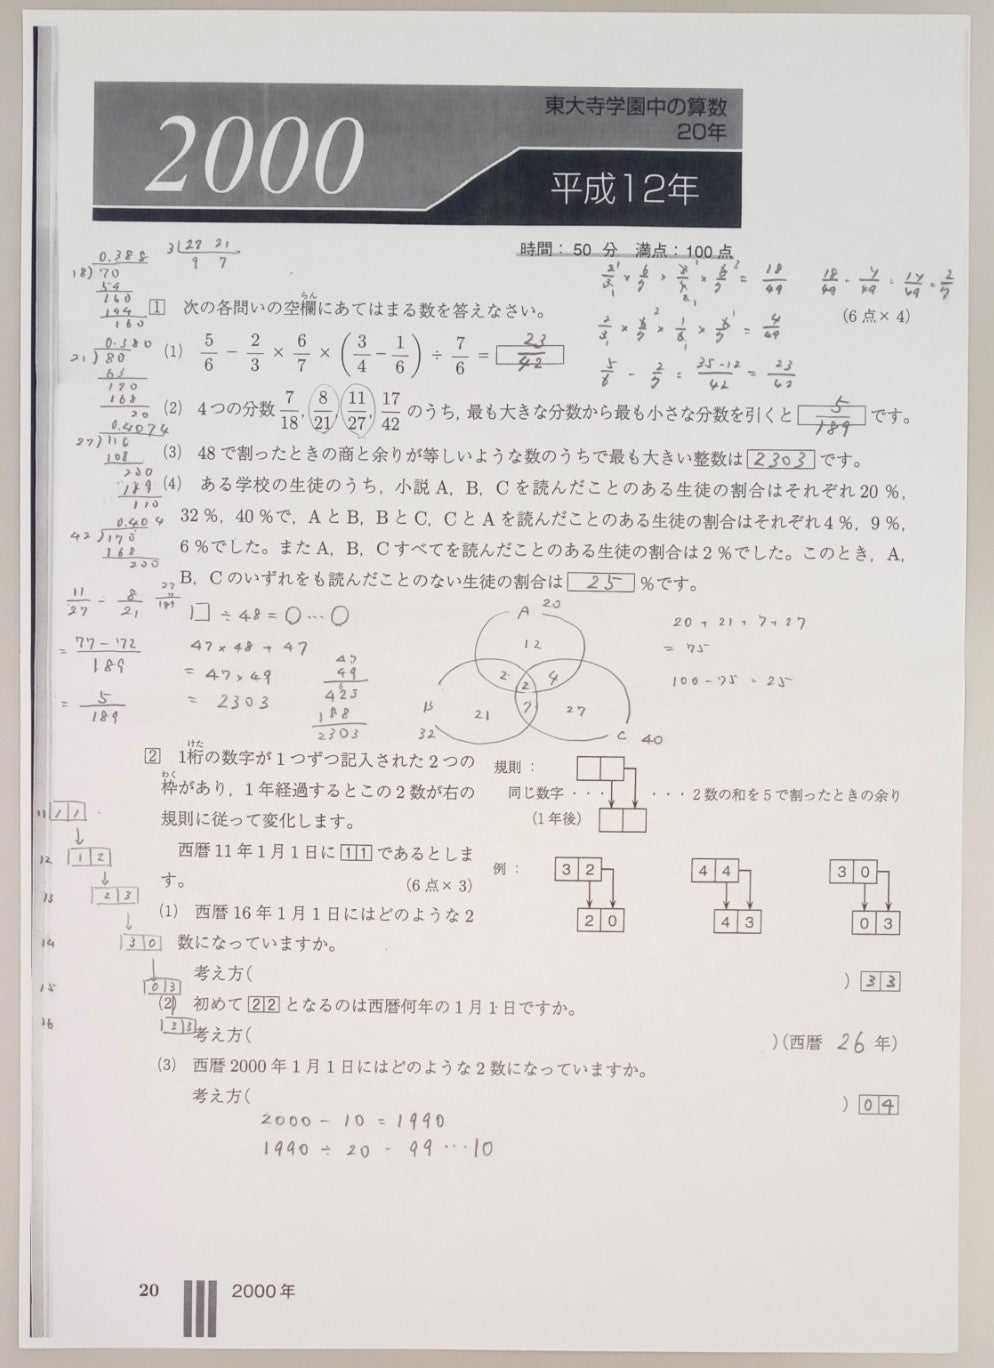 東大寺学園中の算数
20年
2000
平成12年
時間: 50 分 満点:100 点
0.388
18)70
54
160
144
160
3)27 21
9 7
2/3 × 6/7 × 3/4 × 6/7 = 18/49
18/49 - 4/49 = 14/49 = 2/7
2/3 × 6/7 × 1/6 × 6/7 = 4/49
5/6 - 2/7 = 35-12/42 = 23/42
1 次の各問いの空欄にあてはまる数を答えなさい。
らん
(6点×4)
0.380
21)80
63
170
168
20
(1) 5/6 - 2/3 × 6/7 × (3/4 - 1/6) ÷ 7/6 = 23/42
(2) 4つの分数 7/18, 8/21, 11/27, 17/42 のうち,最も大きな分数から最も小さな分数を引くと 5/189 です。
0.4074
27)110
108
200
189
110
(3) 48で割ったときの商と余りが等しいような数のうちで最も大きい整数は 2303 です。
(4) ある学校の生徒のうち,小説A,B,Cを読んだことのある生徒の割合はそれぞれ20%,
32%,40%で,AとB,BとC,CとAを読んだことのある生徒の割合はそれぞれ4%,9%,
6%でした。またA,B,Cすべてを読んだことのある生徒の割合は2%でした。このとき,A,
B,Cのいずれをも読んだことのない生徒の割合は 25 %です。
0.404
42)170
168
200
11/27 - 8/21
= 77-72/189
= 5/189
27
7
189
□ ÷ 48 = ○ … ○
47 × 48 + 47
= 47 × 49
= 2303
47
49
423
188
2303
A 20
12
2 2 4
B 21 7 27
32 C 40
20 + 21 + 7 + 27
= 75
100 - 75 = 25
2 1桁の数字が1つずつ記入された2つの
けた
枠があり,1年経過するとこの2数が右の
わく
規則に従って変化します。
西暦11年1月1日に 1 1 であるとしま
す。 (6点×3)
規則:
同じ数字・・・ ・・・2数の和を5で割ったときの余り
(1年後)
例: 3 2 4 4 3 0
2 0 4 3 0 3
11 1 1
12 1 2
13 2 3
14 3 0
15 0 3
16 3 3
(1) 西暦16年1月1日にはどのような2
数になっていますか。
考え方( ) 3 3
(2) 初めて 2 2 となるのは西暦何年の1月1日ですか。
考え方( )(西暦 26 年)
(3) 西暦2000年1月1日にはどのような2数になっていますか。
考え方( ) 0 4
2000 - 10 = 1990
1990 ÷ 20 = 99 … 10
20 2000年